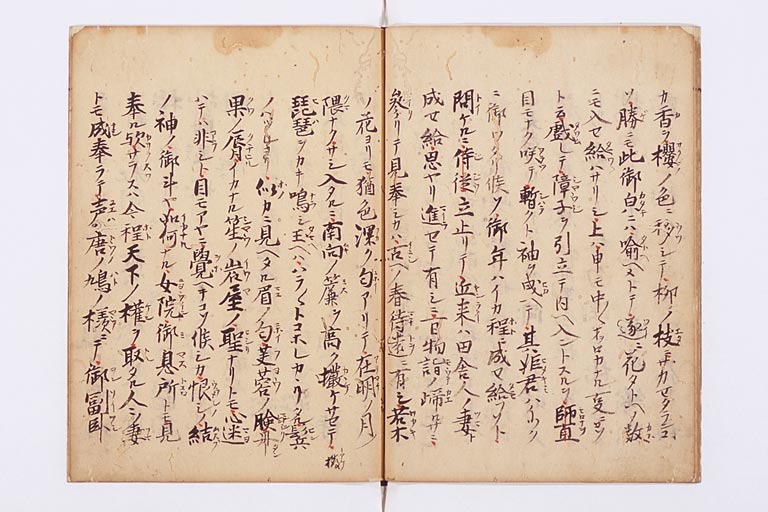 カ香ヲ櫻ノ色ニ移シテ柳ノ枝ニサカセタランコ
ソ勝ニモ此御皃ニハ喩ヘメトテ遂ニ花タトヘノ数
ニモ入セ給ハサリシ上ハ申モ中〳〵ヲロカナル変ソ
ト云戯レテ障子ヲ引立テ内ヘ入ントスルヲ師直
目モナク咲テ暫クト袖ヲ テ其姫君ハイツク
ニ御ワタリ候ソ御年ハイカ程ニ成セ給ソト
問ケルニ侍従立止リテ近来ハ田舎人ノ妻ト
成セ給思ヤリ進セテ有シニ一日物詣ノ帰ルサニ
参リテ見奉シカハ古ヘノ春待遠ニ有シ若木
ノ花ヨリモ猶色深ク匂アリテ在明ノ月ノ
隈ナクサシ入タルニ南向ノ簾ヲ高ク ケサセテ
琵琶ヲカキ鳴シ玉ヘハハラ〳〵トコホレカヽリタル鬂
ノハツレヨリ カニ見ヘタル眉ノ匂芙蓉ノ瞼丹
果ノ唇イカナル笙ノ岩屋ノ聖ナリトモ心迷
ハテハ非シト目モアヤニ覺ヘテコソ候シカ恨シノ結
ノ神ノ御斗ヤ如何ナル女院御息所トモ見
奉ル欤サラスハ今程天下ノ権ヲ取タル人ノ妻
トモ成奉ラテ声ハ唐ノ鳩ノ様ニテ御冨臥